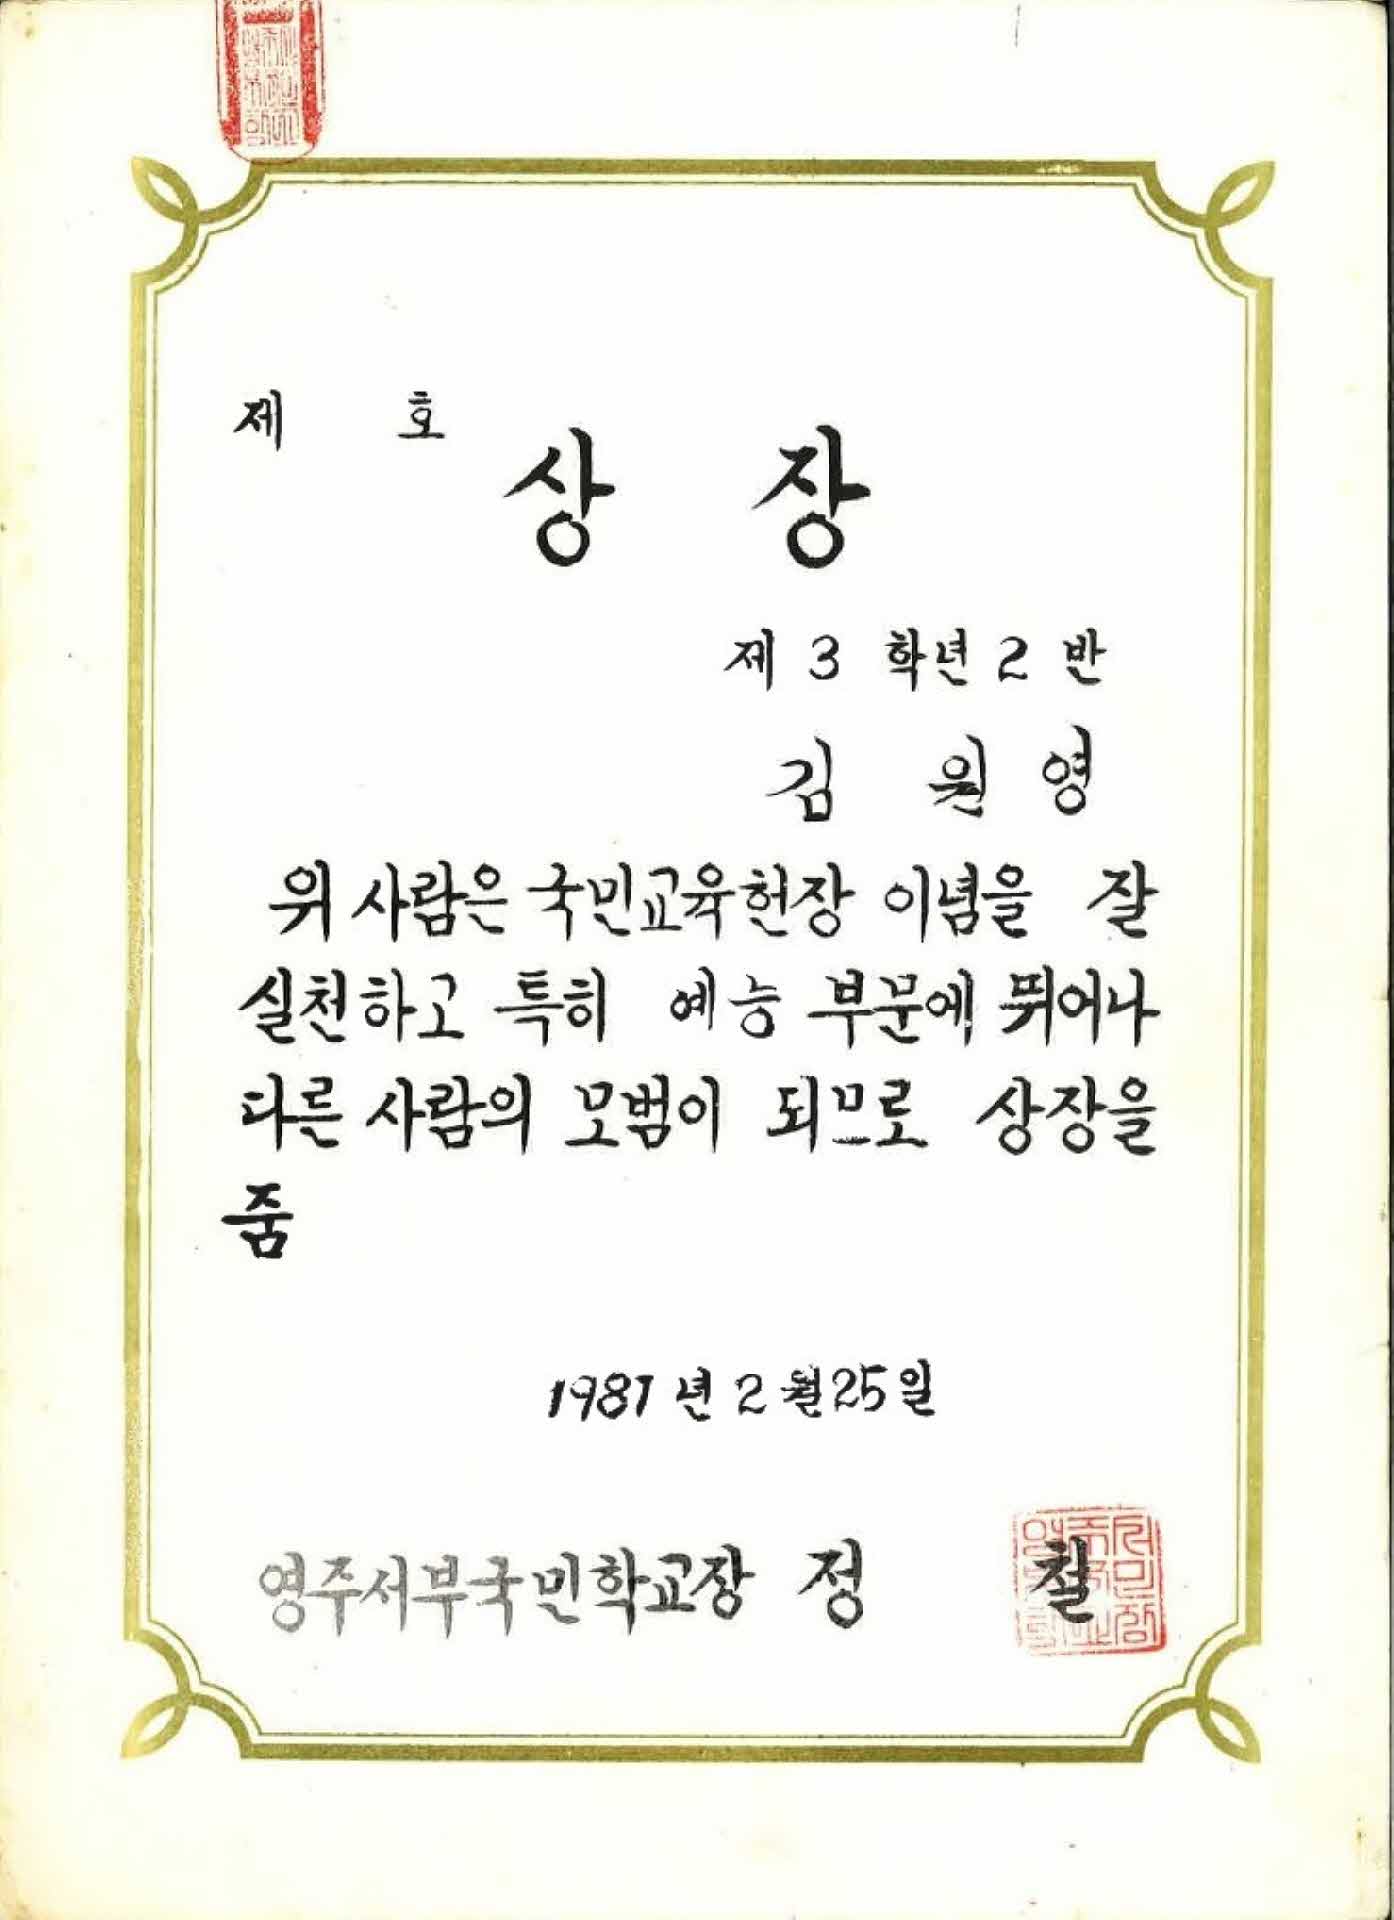 제 호
상 장
제 3 학년 2 반
김 원 영
위 사람은 국민교육헌장 이념을 잘
실천하고 특히 예능 부문에 뛰어나
다른 사람의 모범이 되므로 상장을
줌
1987 년 2 월 25 일
영주서부국민학교장 정 철